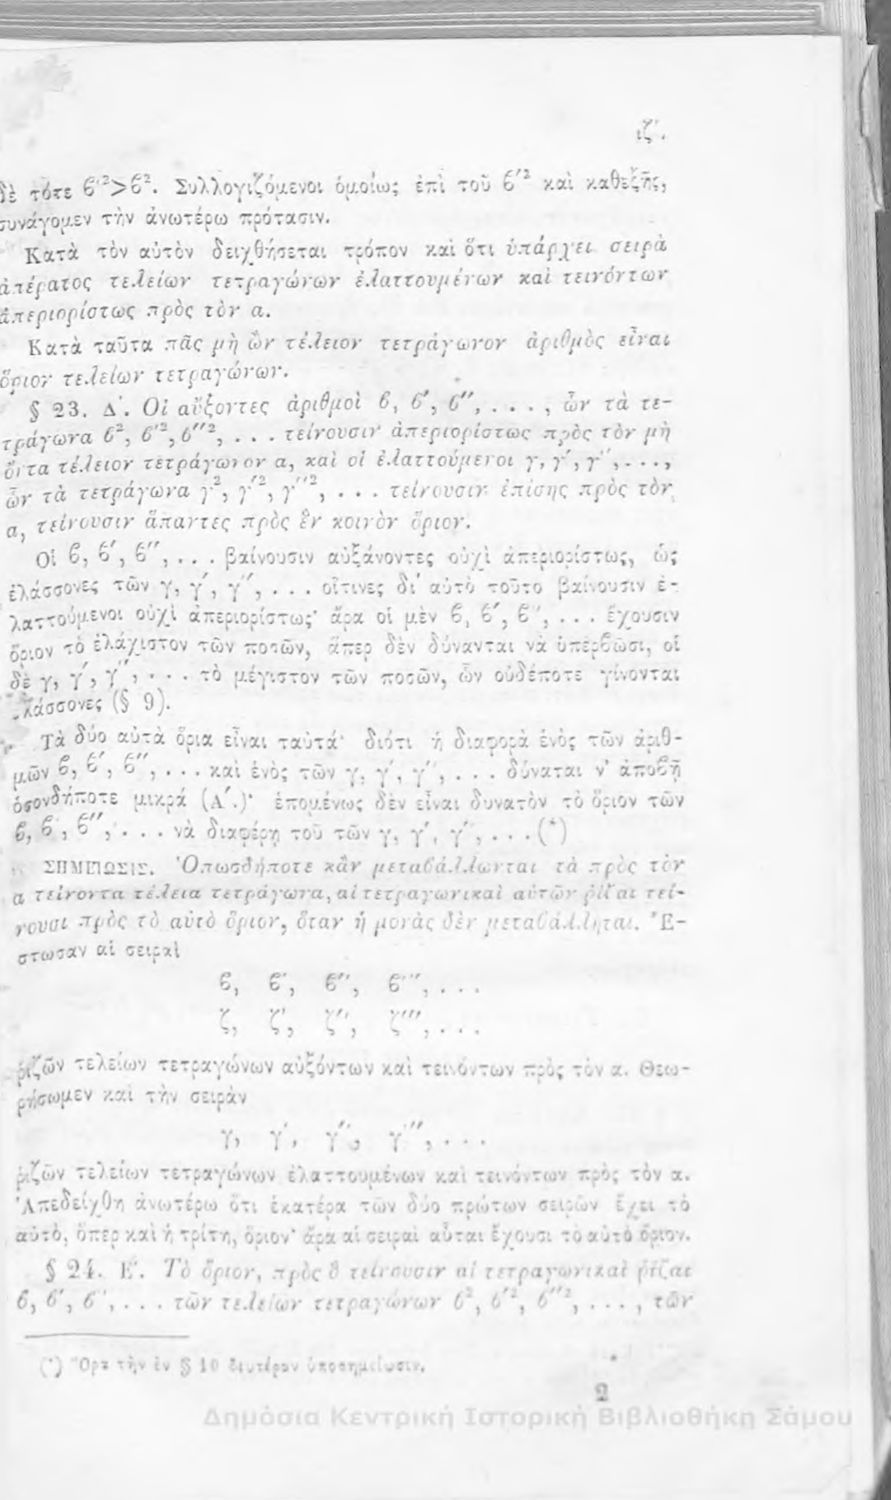 ιζ΄.
δὲ τότε ϐ΄²>ϐ². Συλλογιζόμενοι ὁμοίως ἐπὶ τοῦ ϐ΄² καὶ καθεξῆς,
συνάγομεν τὴν ἀνωτέρω πρότασιν.
Κατὰ τὸν αὐτὸν δειχθήσεται τρόπον καὶ ὅτι ὑπάρχει σειρὰ
ἀπέρατος τελείων τετραγώνων ἐλαττουμένων καὶ τεινόντων
ἀπεριορίστως πρὸς τὸν α.
Κατὰ ταῦτα πᾶς μὴ ὢν τέλειον τετράγωνον ἀριθμὸς εἶναι
ὅριον τελείων τετραγώνων.
§ 23. Δ΄. Οἱ αὔξοντες ἀριθμοὶ ϐ, ϐ΄, ϐ΄΄, . . . , ὧν τὰ τε-
τράγωνα ϐ², ϐ΄², ϐ΄΄², . . . τείνουσιν ἀπεριορίστως πρὸς τὸν μὴ
ὄντα τέλειον τετράγωνον α, καὶ οἱ ἐλαττούμενοι γ, γ΄, γ΄΄, . . .,
ὧν τὰ τετράγωνα γ², γ΄², γ΄΄², . . . τείνουσιν ἐπίσης πρὸς τὸν
α, τείνουσιν ἅπαντες πρὸς ἓν κοινὸν ὅριον.
Οἱ ϐ, ϐ΄, ϐ΄΄, . . . βαίνουσιν αὐξάνοντες οὐχὶ ἀπεριορίστως, ὡς
ἐλάσσονες τῶν γ, γ΄, γ΄΄, . . . οἵτινες δι᾽ αὐτὸ τοῦτο βαίνουσιν ἐ-
λαττούμενοι οὐχὶ ἀπεριορίστως· ἄρα οἱ μὲν ϐ, ϐ΄, ϐ΄΄, . . . ἔχουσιν
ὅριον τὸ ἐλάχιστον τῶν ποσῶν, ἅπερ δὲν δύνανται νὰ ὑπερϐῶσι, οἱ
δὲ γ, γ΄, γ΄΄, . . . τὸ μέγιστον τῶν ποσῶν, ὧν οὐδέποτε γίνονται
λάσσονες (§ 9).
Τὰ δύο αὐτὰ ὅρια εἶναι ταὐτά· διότι ἡ διαφορὰ ἑνὸς τῶν ἀριθ-
μῶν ϐ, ϐ΄, ϐ΄΄, . . . καὶ ἑνὸς τῶν γ, γ΄, γ΄΄, . . . δύναται ν᾽ ἀποϐῇ
ὁσονδήποτε μικρά (Α΄.)· ἑπομένως δὲν εἶναι δυνατὸν τὸ ὅριον τῶν
ϐ, ϐ΄, ϐ΄΄, . . . νὰ διαφέρῃ τοῦ τῶν γ, γ΄, γ΄΄, . . . (*)
ΣΗΜΕΙΩΣΙΣ. Ὁπωσδήποτε κἂν μεταϐάλλωνται τὰ πρὸς τὸν
α τείνοντα τέλεια τετράγωνα, αἱ τετραγωνικαὶ αὐτῶν ῥίζαι τεί-
νουσι πρὸς τὸ αὐτὸ ὅριον, ὅταν ἡ μονὰς δὲν μεταϐάλληται. Ἔ-
στωσαν αἱ σειραὶ
ϐ, ϐ΄, ϐ΄΄, ϐ΄΄΄, . . .
ζ, ζ΄, ζ΄΄, ζ΄΄΄, . . .
ῥιζῶν τελείων τετραγώνων αὐξόντων καὶ τεινόντων πρὸς τὸν α. Θεω-
ρήσωμεν καὶ τὴν σειρὰν
γ, γ΄, γ΄΄, γ΄΄΄, . . .
ῥιζῶν τελείων τετραγώνων ἐλαττουμένων καὶ τεινόντων πρὸς τὸν α.
Ἀπεδείχθη ἀνωτέρω ὅτι ἑκατέρα τῶν δύο πρώτων σειρῶν ἔχει τὸ
αὐτὸ, ὅπερ καὶ ἡ τρίτη, ὅριον· ἄρα αἱ σειραὶ αὗται ἔχουσι τὸ αὐτὸ ὅριον.
§ 24. Ε΄. Τὸ ὅριον, πρὸς ὃ τείνουσιν αἱ τετραγωνικαὶ ῥίζαι
ϐ, ϐ΄, ϐ΄΄, . . . τῶν τελείων τετραγώνων ϐ², ϐ΄², ϐ΄΄², . . . , τῶν
(*) Ὅρα τὴν ἐν § 10 δευτέραν ὑποσημείωσιν.
2
Δημόσια Κεντρική Ιστορική Βιβλιοθήκη Σάμου